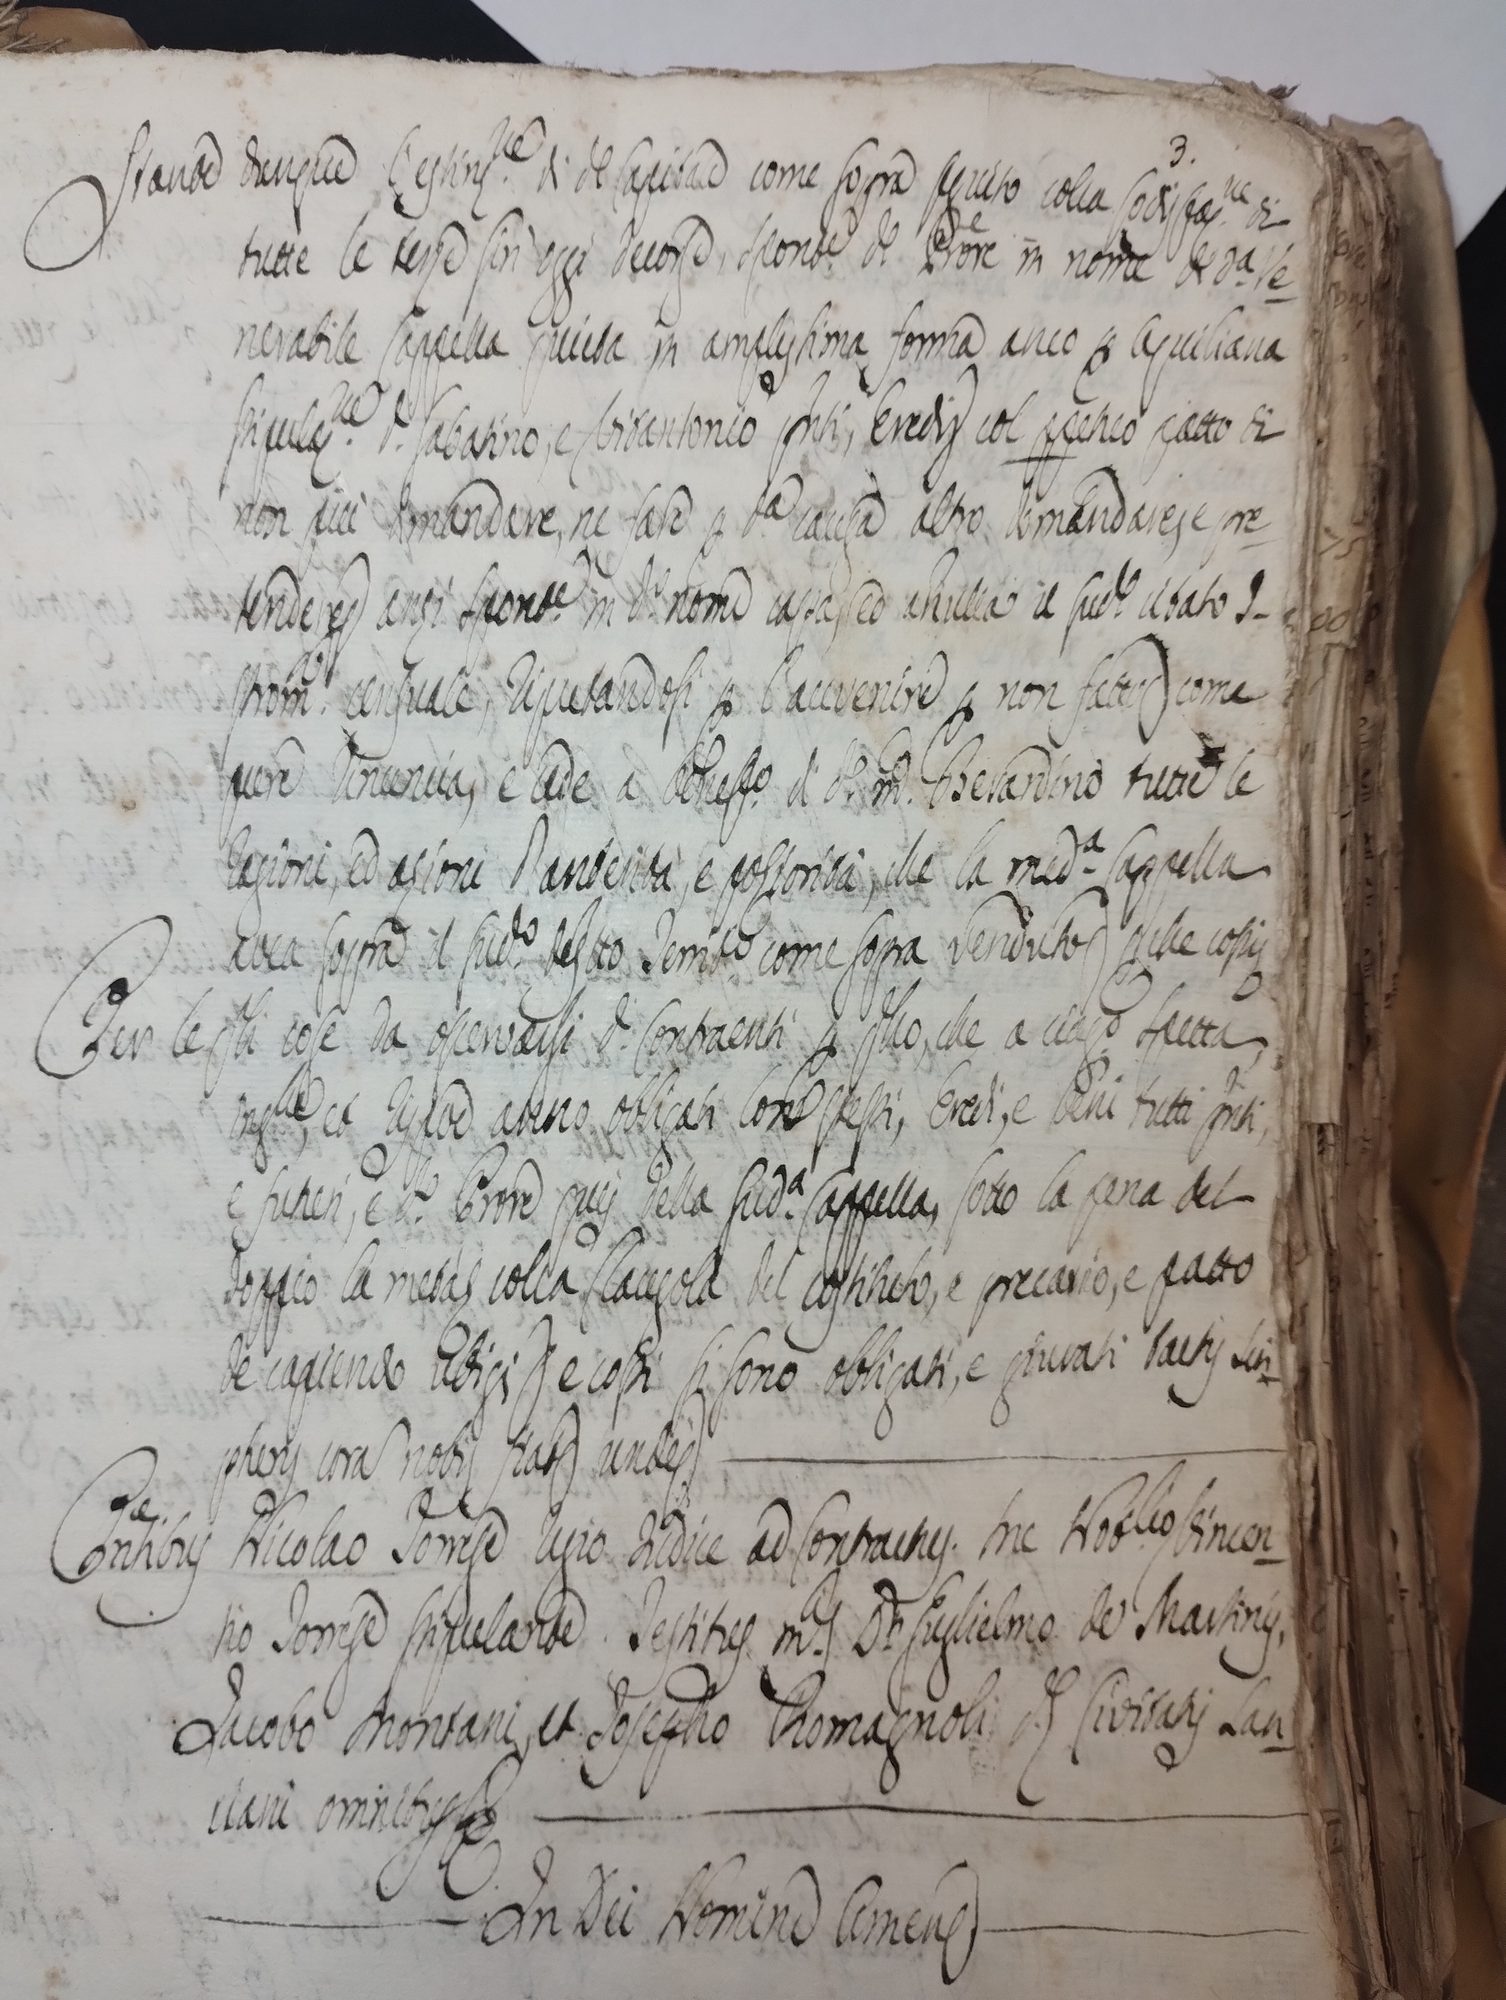 3.
Stante dunque l'estinz.ne di d.o Capitale come sopra seguito colla sodisfaz.ne di
tutte le terze sin'oggi decorse, sponte d.o Pro.re in nome di d.a Ve-
nerabile Cappella quieta in amplissima forma anco p aquiliana
stipulaz.ne d. Sabatino, e Vitantonio pnti, Eredi col patto di
non più domandare, ne fare p d.a causa altro domandare, e pre-
tendere, anzi sponte in d.o nome cassa, ed annulla il sud.o citato I-
strom.o censuale, riputandosi p l'avvenire p non fatto come
pure rinuncia, e cede a beneficio di d.o m.o Berardino tutte le
ragioni, ed azioni anteriorità, e poziorità, che la med.a Cappella
avea sopra il sud.o Territ.o come sopra venduto
Per le qli cose da osservarsi d. Contraenti p qllo, che a ciasc.o spetta,
obligati loro stessi, Eredi, e beni tutti pnti,
e futuri, e d.o Pro.re qlli della sud.a Cappella, sotto la pena del
doppio la metà, colla clausola del costituto, e precario, e patto
de capiendo e così si sono obligati, e giurati tactis Scri-
pturis coram nobis unde
Pntibus Nicolao Torrese regio Iudice ad Contractus. me Not.io Vincen-
tio Torrese stipulante. Testibus m.co D.r Guglielmo de Martinis,
Jacobo Montani, et Josepho Romagnoli Civitatis Lan-
ciani omnibus
In Dei Nomine Amen